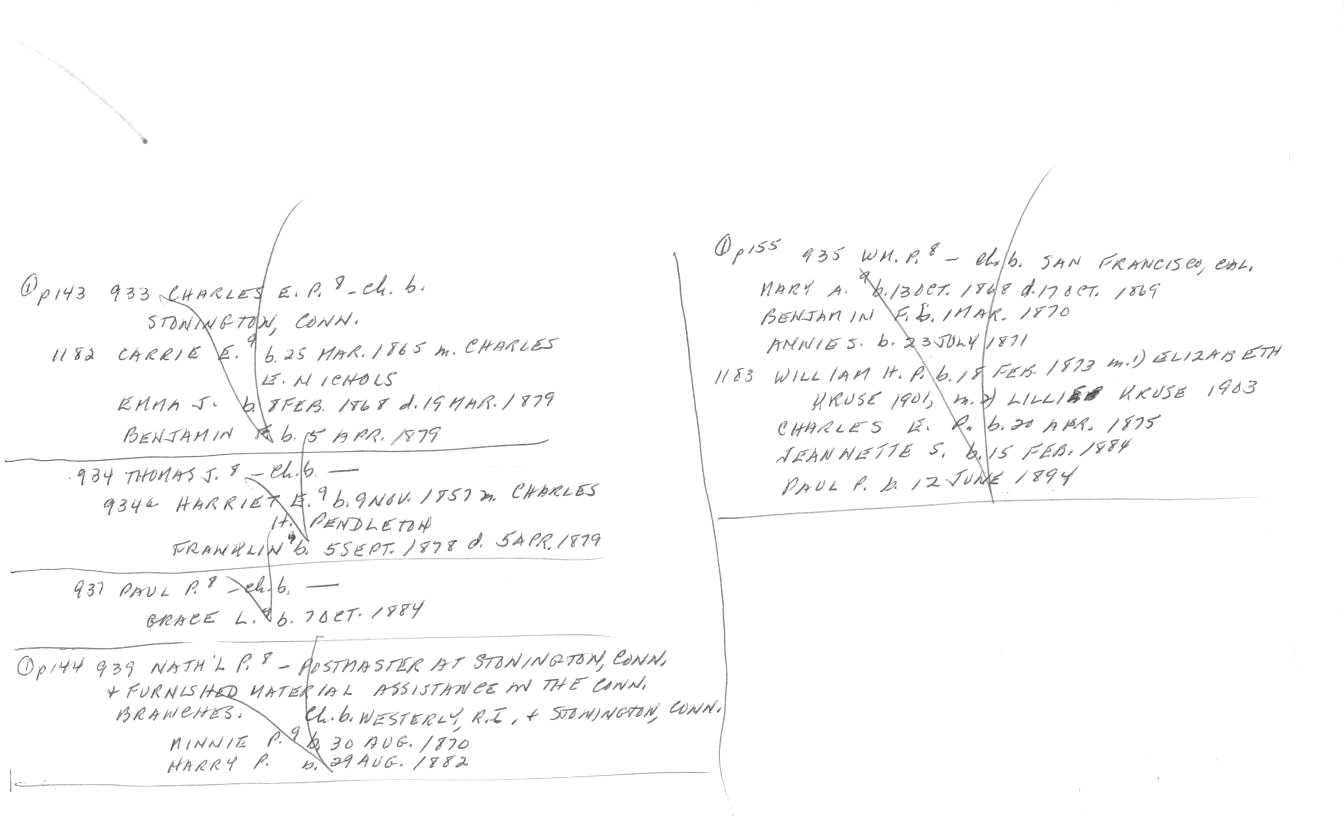 ① p143 933 CHARLES E. P. 8 - Ch. b.
STONINGTON, CONN.
1182 CARRIE E. 9 b. 25 MAR. 1865 m. CHARLES
E. NICHOLS
EMMA J. b. 8 FEB. 1868 d. 19 MAR. 1879
BENJAMIN F. b. 5 APR. 1879
934 THOMAS J. 8 - Ch. b. —
934a HARRIET E. 9 b. 9 NOV. 1857 m. CHARLES
H. PENDLETON
FRANKLIN 9 b. 5 SEPT. 1878 d. 5 APR. 1879
937 PAUL P. 8 - Ch. b. —
GRACE L. 9 b. 7 OCT. 1884
① p144 939 NATH'L P. 8 - POSTMASTER AT STONINGTON, CONN.
+ FURNISHED MATERIAL ASSISTANCE IN THE CONN.
BRANCHES. Ch. b. WESTERLY, R.I., + STONINGTON, CONN.
MINNIE P. 9 b. 30 AUG. 1870
HARRY P. b. 29 AUG. 1882
① p155 935 WM. P. 8 - Ch. b. SAN FRANCISCO, CAL.
MARY A. 9 b. 13 OCT. 1868 d. 17 OCT. 1869
BENJAMIN F. b. 1 MAR. 1870
ANNIE S. b. 23 JULY 1871
1183 WILLIAM H. P. b. 18 FEB. 1873 m. 1) ELIZABETH
KRUSE 1901, m. 2) KRUSE 1903
CHARLES E. P. b. 20 APR. 1875
JEANNETTE S. b. 15 FEB. 1884
PAUL P. b. 12 JUNE 1894